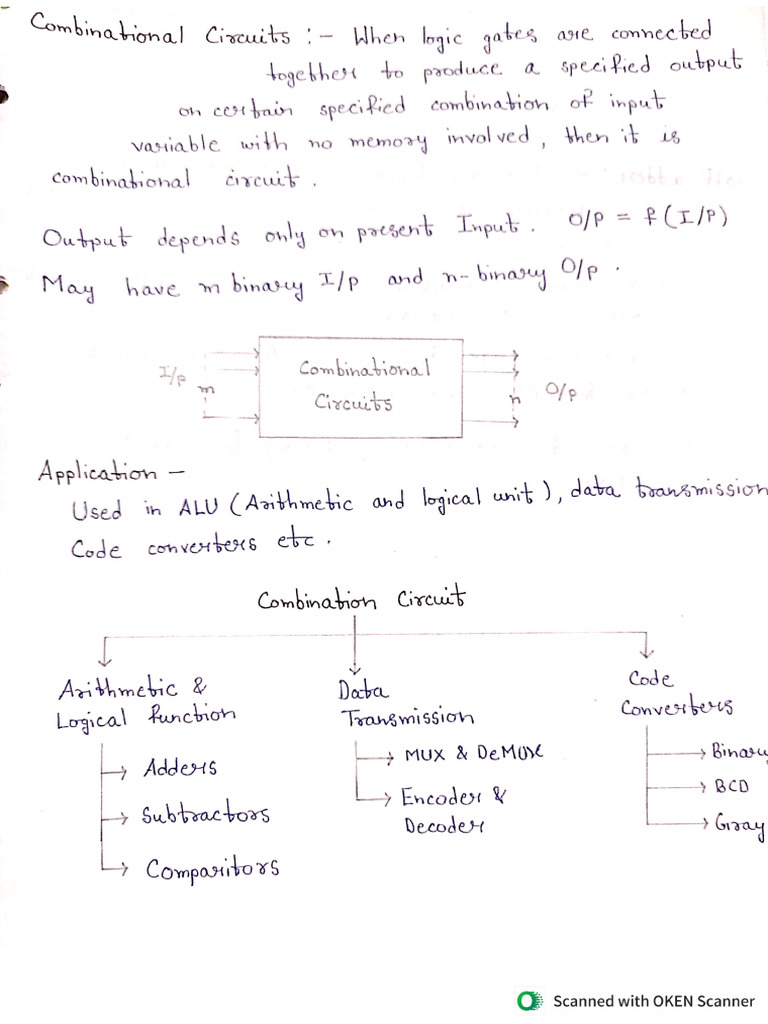 Combinational Circuits :- When logic gates are connected
together to produce a specified output
on certain specified combination of input
variable with no memory involved, then it is
combinational circuit.
Output depends only on present Input. O/P = f(I/P)
May have m binary I/p and n-binary O/p.
I/p m Combinational Circuits n O/p
Application -
Used in ALU (Arithmetic and logical unit), data transmission
Code converters etc.
Combination Circuit
Arithmetic &
Logical function
Adders
Subtractors
Comparitors
Data
Transmission
MUX & DeMUX
Encoder &
Decoder
Code
Converters
Binary
BCD
Gray
Scanned with OKEN Scanner